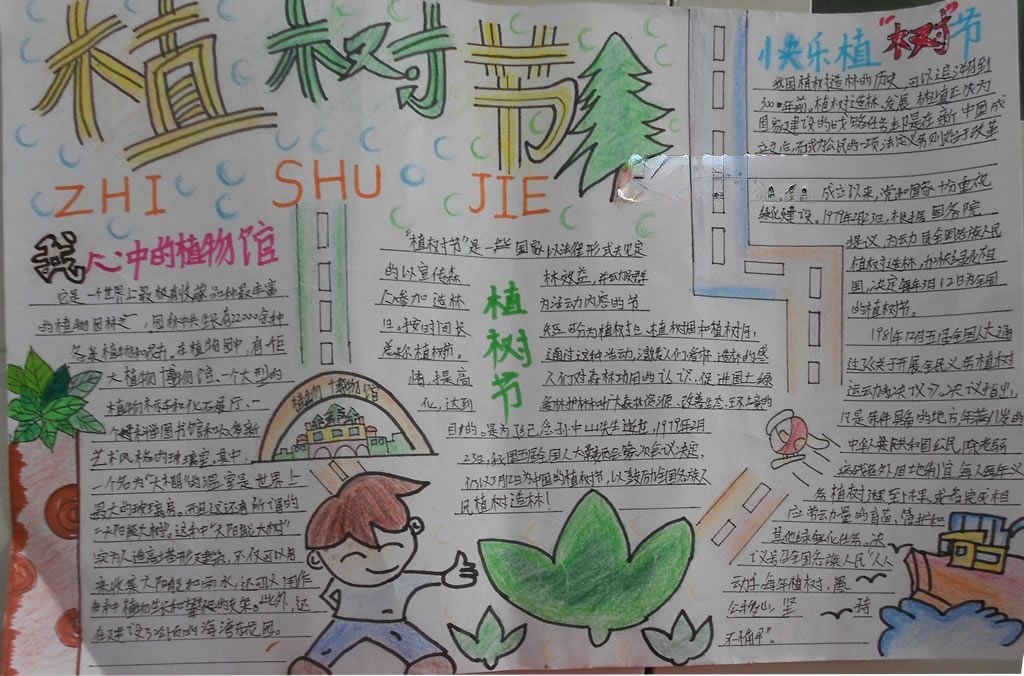 植树节
ZHI SHU JIE
我心中的植物馆
这是一个世界上最极有收藏品种最丰富
的植物园林之,园林中共生长有22000余种
各类植物和昆虫。在植物园中,有作
大植物博物馆、一个大型的
植物标本和化石展厅、一
个科学图书馆和众多新
艺术风格的玻璃室。其中,
一个名为“大棚”的温室是世界上
最大的玻璃房,而且这还有所谓的
“太阳能大树”。这和中“太阳能大树”
实为人造高塔形建筑,不仅可以用
来收集太阳能和雨水,还可以用作
各种植物生长和攀爬的支架。此外,这
在建设了公顷的海湾花园。
植物博物馆
植树节
“植树节”是一些国家以法律形式去规定
的以宣传森林效益,并动员群
众参加造林为活动内容的节
日。按时间长短可分为植树日、植树周和植树月,
总称植树节。通过这种活动,激发人们爱林、造林的感
情、提高人们对森林功用的认识,促进国土绿
化,达到爱林护林和扩大森林资源、改善生态
目的。是为了纪念孙中山先生逝世,1979年2月
23日,我国五届全国人大常委会第六次会议决定,
仍以3月12日为中国的植树节,以鼓励全国各族人
民植树造林!
快乐植“树”节
我国植树造林的历史,可以追溯到
3000年前。植树造林、发展
国家建设的战略任务却是在新中国成
立之后,而成为公民的一项法定义务则始于改革
成立以来,党和国家十分重视
绿化建设,1979年2月23日,根据国务院
提议,为动员全国各族人民
植树造林,加快绿化祖
国,决定每年3月12日为全国
的植树节。
1981年12月五届全国人大通
过了关于开展全民义务植树
运动的决议》。决议指出,
凡是条件具备的地方年满11岁的
中华人民共和国公民,除老弱
病残者外,因地制宜,每人每年义
务植树3棵至5棵,或者完成相
应劳动量的育苗、管护和
其他绿化任务。决
议号召全国各族人民“人人
动手,每年植树,愚
公移山,坚持
不懈”。